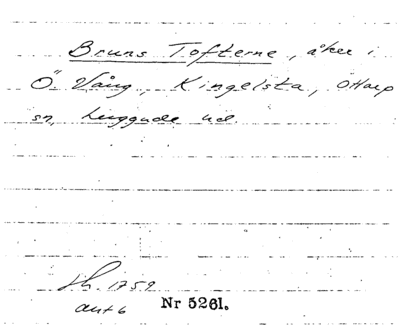 Bruns Tofterne, åker i
Ö. Vång, Kingelsta, Ö Harp
sn, huggude ud.
sh. 1759
ant 6 Nr 5261.